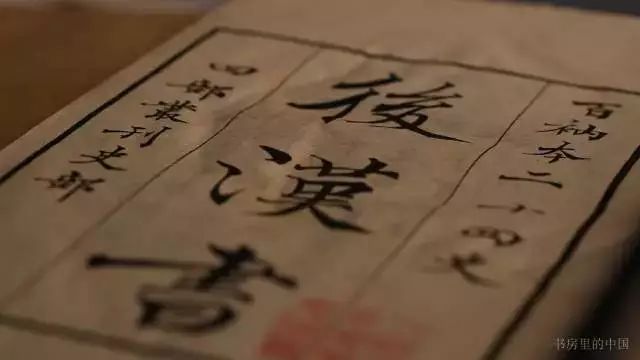 百衲本二十四史
後漢書
四部叢刊史部
书房里的中国